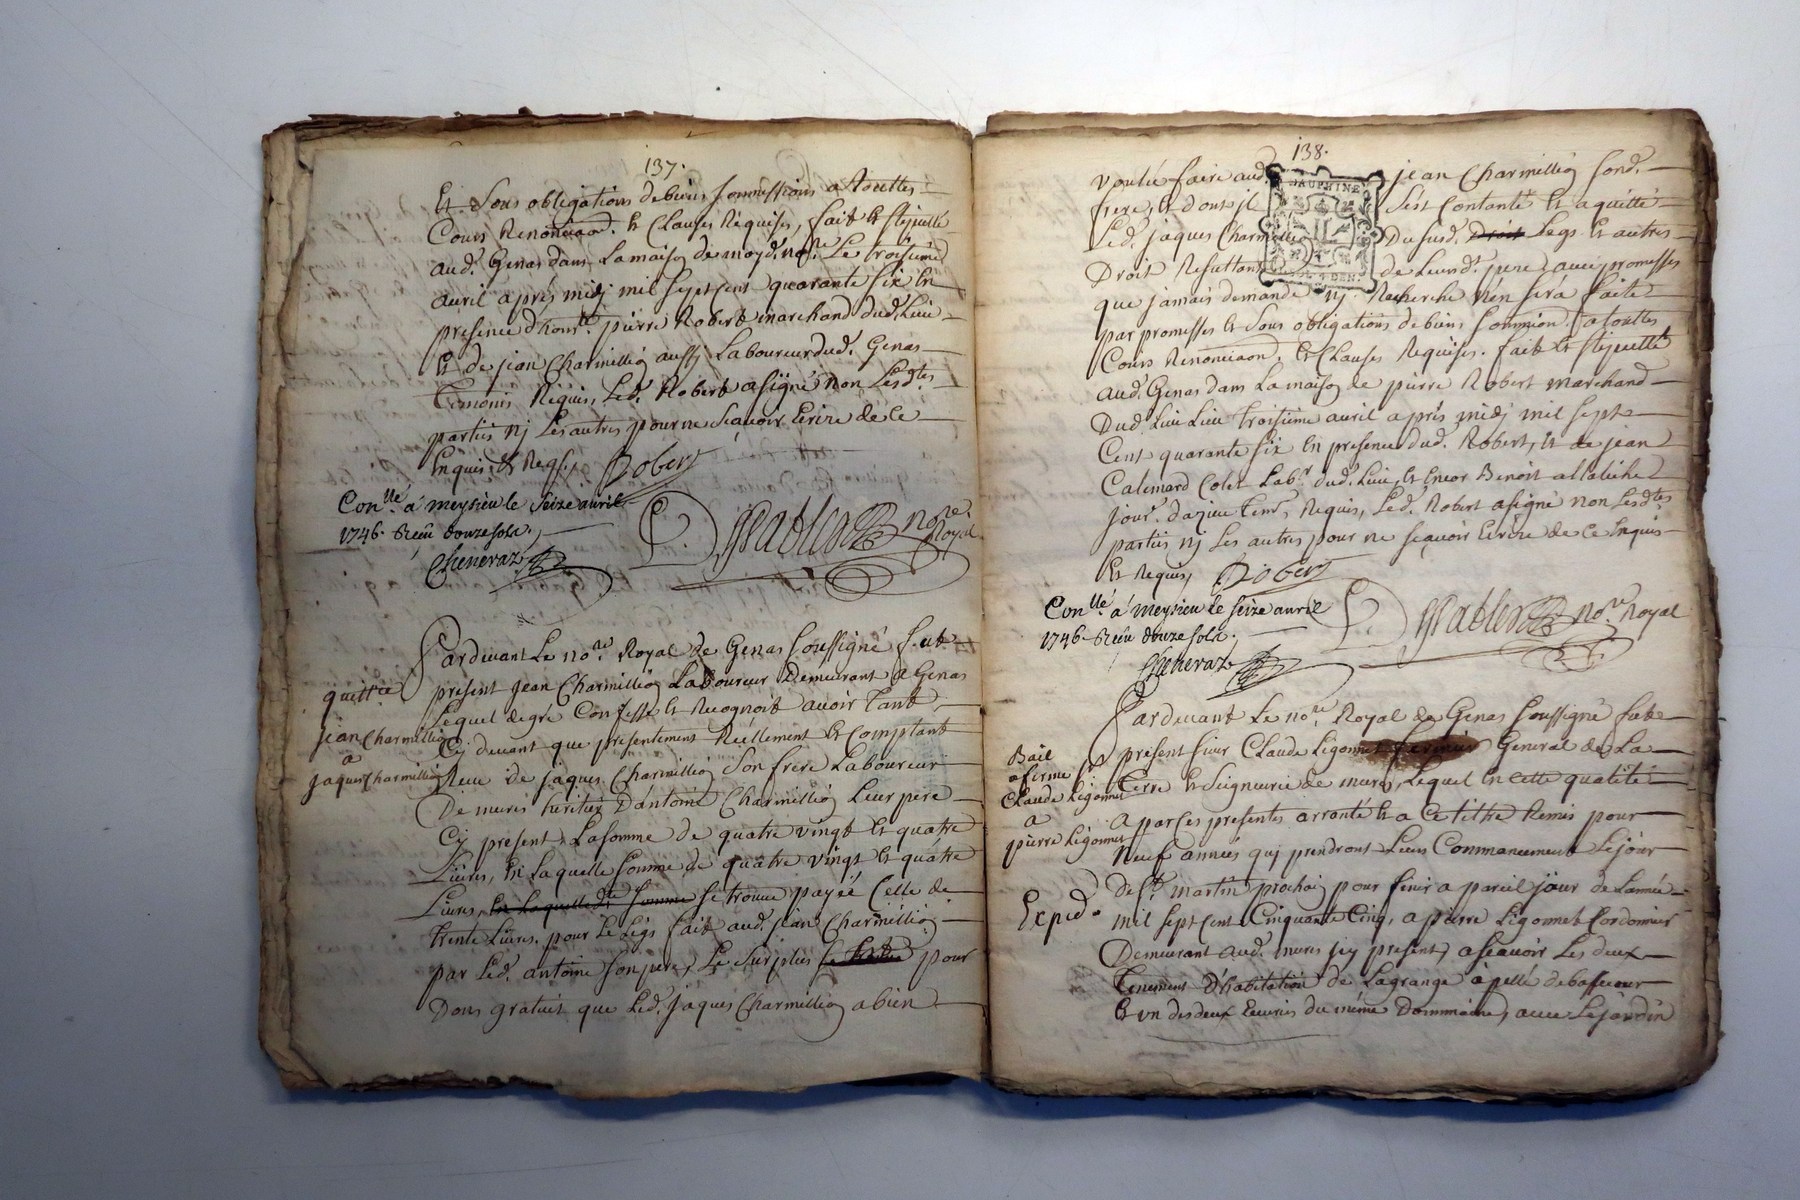 137.
Et Sous obligations de biens Sommissions a Touttes
Cours Renonciaon. et Clauses Requises, fait et stipullé
aud. Genas dans La maison de moyd. no.re Le troisieme
avril après midj mil Sept cent quarante Six En
presence d'hon.ble pierre Robert marchand dud. Lieu
Et de jean Charmillioz aussj Laboureur dud. Genas
Temoins Requis, Led. Robert a signé non Lesd.tes
parties nj Les autres pour ne Sçavoir Ecrire de Ce
Enquis Et Reqs.,
Robert
Con.llé a meysieu le Seize avril
1746. Reçû douze sols.
Cheneraz
no.re Royal
Pardevant Le no.re Royal de Genas Soussigné fut
quittce
present jean Charmillioz Laboureur Demeurant a Genas
Lequel degré Confesse et Recognoit avoir Tant
jean Charmillioz
Cy devant que presentement Réellement et Comptant
a
jaques Charmillioz
Reçu de jaques Charmillioz Son frere Laboureur
De mures heritier D'antoine Charmillioz Leur pere
Cy present, La somme de quatre vingt et quatre
Livres, En Laquelle Somme de quatre vingt et quatre
Livres, En Laquelle d.te Somme se trouve payéé Celle de
trente Livres. pour Le Legs fait aud. jean Charmillioz
par Led. antoine Son pere, Le Surplus pour
Dons gratuit que Led. jaques Charmillioz a bien
138.
DAUPHINE
voulu faire aud. jean Charmillioz Sond.
frere, et dont jl Sest Contanté et a quitté
Led. jaques Charmillioz Du susd. Droit Legs et autres
Droit Resultant de Leursd.t pere, avec promesses
que jamais demande nj Recherche n'en sera faite
par promesses et Sous obligations de biens Sommion. a touttes
Cours Renonciaon. et Clauses Requises. fait et stipullé
aud. Genas dans La maison de pierre Robert marchand
Dud. Lieu Lieu troisieme avril après midj mil Sept
Cent quarante Six En presence dud. Robert, et de jean
Calemard Colet Lab.r dud. Lieu, et Benoit
jour. Tem. Requis, Led. Robert a signé non Lesd.tes
parties nj Les autres pour ne Sçavoir Ecrire de Ce Enquis
Et Requis,
Robert
Con.llé a meysieu le Seize avril
1746. Reçû douze sols.
no.re Royal
Cheneraz
Pardevant Le no.re Royal de Genas Soussigné fut
Bail
present Sieur Claude Ligonnet fermier General de La
a ferme Sr.
Claude Ligonnet
Terre et Seigneurie de mures, Lequel En Cette qualité
a
a par Ces presentes arranté et a Ce tiltre Remis pour
pierre Ligonnet
Neuf années quj prendront Leurs Commancement Le jour
de St. martin prochain pour finir a pareil jour de L'année
Exped.
mil Sept Cent Cinquante Cinq, a pierre Ligonnet Cordonnier
Demeurant aud. mures jcy present, a Sçavoir Les deux
Tenement D'habitation de La grange apellé
Et un des deux Ecuries du même Dommaine, avec Le jardin